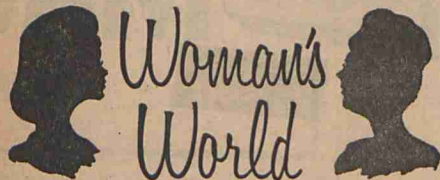 Woman's
World